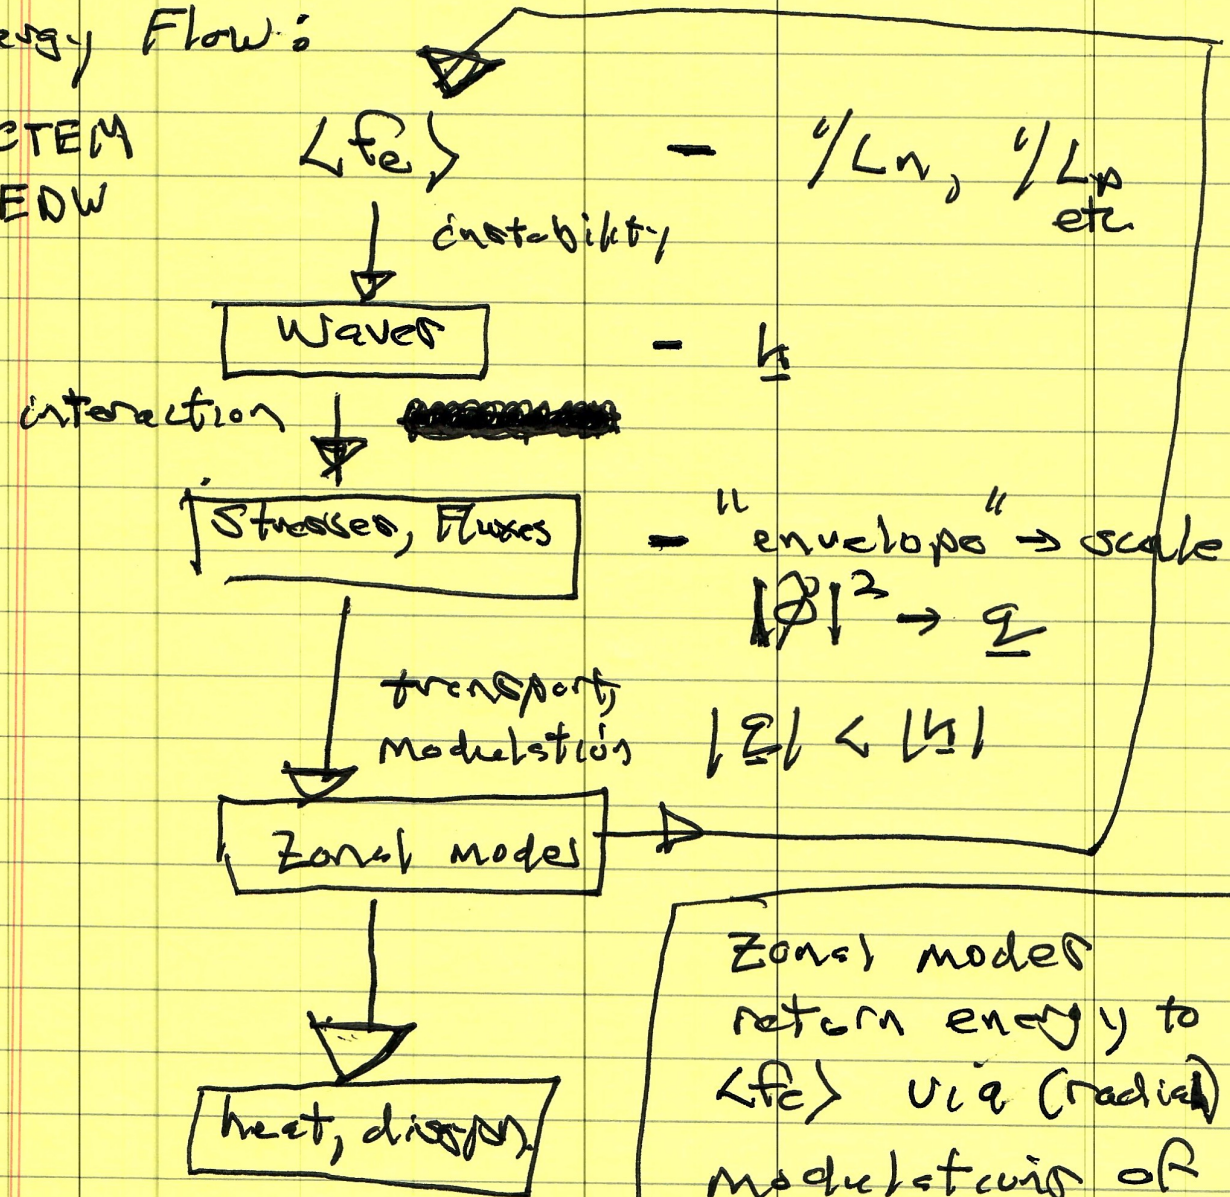 ergy Flow:
CTEM
EDW
<fe> - 1/Ln, 1/Lp
etc
instability
Waves - k
interaction
Stresses, Fluxes - "envelope" → scale
|φ|² → q
transport,
modulation |q| < |k|
Zonal modes
Zonal modes
return energy to
<fe> via (radial)
heat, disspn.
modulations of